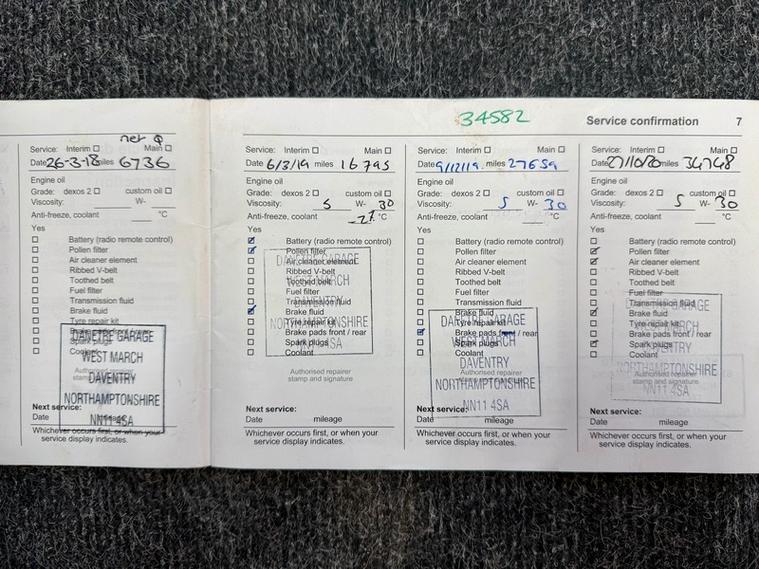 34582
Service confirmation 7
net Q
Service: Interim Main
Date 26-3-18 miles 6736
Engine oil
Grade: dexos 2 custom oil
Viscosity: W-
Anti-freeze, coolant °C
Yes
Battery (radio remote control)
Pollen filter
Air cleaner element
Ribbed V-belt
Toothed belt
Fuel filter
Transmission fluid
Brake fluid
Tyre repair kit
Spark plugs
Coolant
Authorised
stamp
DANETRE GARAGE
WEST MARCH
DAVENTRY
NORTHAMPTONSHIRE
NN11 4SA
Next service:
Date mileage
Whichever occurs first, or when your
service display indicates.
Service: Interim Main
Date 6/3/19 miles 16795
Engine oil
Grade: dexos 2 custom oil
Viscosity: 5 W- 30
Anti-freeze, coolant -27 °C
Yes
Battery (radio remote control)
Pollen filter
Air cleaner element
Ribbed V-belt
Toothed belt
Fuel filter
Transmission fluid
Brake fluid
Tyre repair kit
Brake pads front / rear
Spark plugs
Coolant
DANETRE GARAGE
WEST MARCH
DAVENTRY
NORTHAMPTONSHIRE
NN11 4SA
Authorised repairer
stamp and signature
Next service:
Date mileage
Whichever occurs first, or when your
service display indicates.
Service: Interim Main
Date 9/12/19 miles 27659
Engine oil
Grade: dexos 2 custom oil
Viscosity: 5 W- 30
Anti-freeze, coolant °C
Yes
Battery (radio remote control)
Pollen filter
Air cleaner element
Ribbed V-belt
Toothed belt
Fuel filter
Transmission fluid
Brake fluid
Tyre repair kit
Brake pads front / rear
Spark plugs
Coolant
Authorised repairer
stamp and signature
DANETRE GARAGE
WEST MARCH
DAVENTRY
NORTHAMPTONSHIRE
NN11 4SA
Next service:
Date mileage
Whichever occurs first, or when your
service display indicates.
Service: Interim Main
Date 27/10/20 miles 34748
Engine oil
Grade: dexos 2 custom oil
Viscosity: 5 W- 30
Anti-freeze, coolant °C
Yes
Battery (radio remote control)
Pollen filter
Air cleaner element
Ribbed V-belt
Toothed belt
Fuel filter
Transmission fluid
Brake fluid
Tyre repair kit
Brake pads front / rear
Spark plugs
Coolant
Authorised repairer
stamp and signature
GARAGE
MARCH
NORTHAMPTONSHIRE
NN11 4SA
Next service:
Date mileage
Whichever occurs first, or when your
service display indicates.